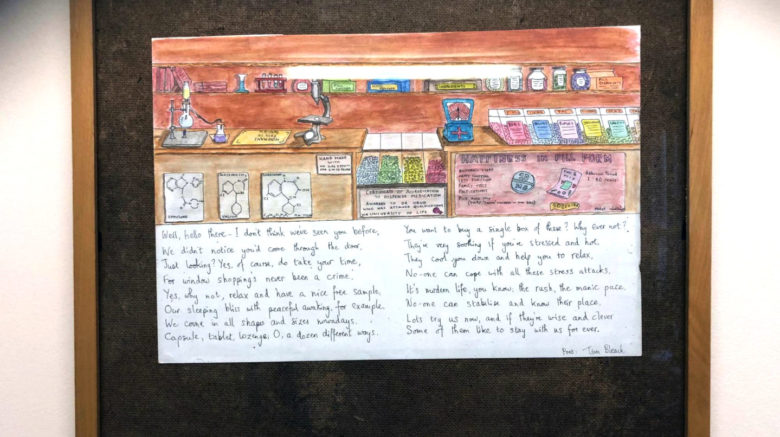 HAND MADE
WITH
CERTIFICATE OF
TO DISPENSE MEDICATION
AWARDED TO DR DRUG
UNIVERSITY OF LIFE
HAPPINESS IN PILL FORM
VALIUM
Well, hello there - I don't think we've seen you before,
We didn't notice you'd come through the door.
Just looking? Yes, of course, do take your time,
For window shopping's never been a crime.
Yes, why not, relax and have a nice free sample,
Our sleeping bliss with peaceful awaking, for example.
We come in all shapes and sizes nowadays.
Capsule, tablet, lozenge, O, a dozen different ways.
You want to buy a single box of these? Why ever not?
They're very soothing if you're stressed and hot.
They cool you down and help you to relax,
No-one can cope with all these stress attacks.
It's modern life, you know, the rush, the manic pace.
No-one can stabilise and know their place.
Lots try us now, and if they're wise and clever
Some of them like to stay with us for ever.
Poet: Tim Bleach